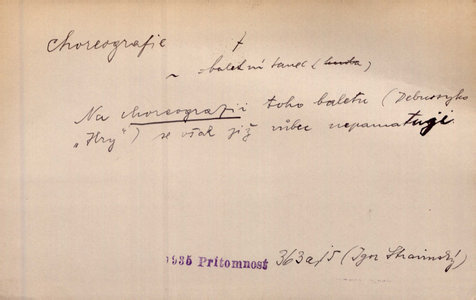 choreografie f
~ baletní tanec (hudba)
Na choreografii toho baletu (Debussyho
„Hry“) se však již vůbec nepamatuji
1935 Přítomnost 363a/5 (Igor Stravinský)